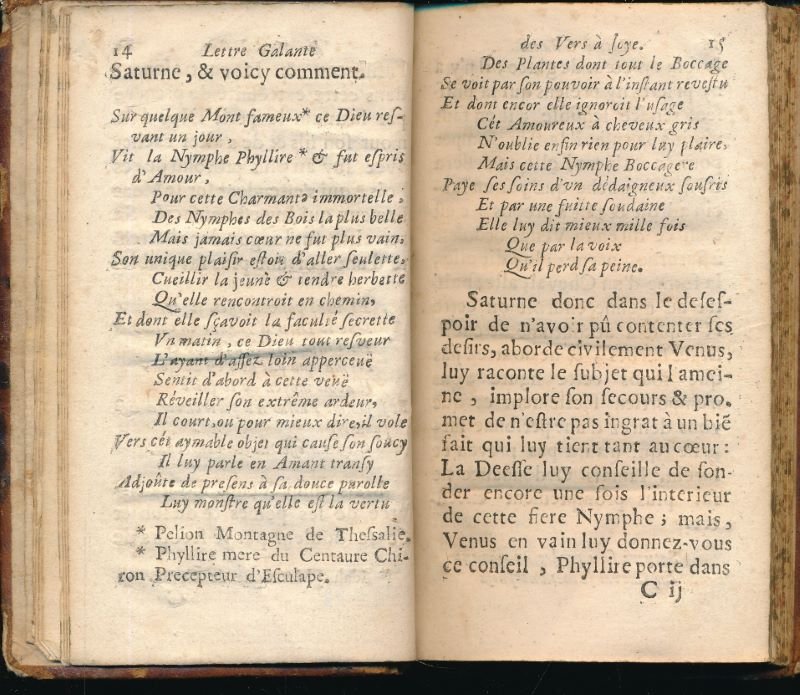 14 Lettre Galante
Saturne, & voicy comment.
Sur quelque Mont fameux* ce Dieu reſ-
vant un jour,
Vit la Nymphe Phyllire * & fut eſpris
d'Amour,
Pour cette Charmante immortelle,
Des Nymphes des Bois la plus belle
Mais jamais cœur ne fut plus vain,
Son unique plaiſir eſtoit d'aller ſeulette,
Cueillir la jeune & tendre herbette
Qu'elle rencontroit en chemin,
Et dont elle ſçavoit la faculté ſecrette
Vn matin, ce Dieu tout reſveur
L'ayant d'aſſez loin apperceuë
Sentit d'abord à cette veuë
Réveiller ſon extrême ardeur,
Il court, ou pour mieux dire, il vole
Vers cét aymable objet qui cauſe ſon ſoucy
Il luy parle en Amant tranſy
Adjoûte de preſens à ſa douce parolle
Luy monſtre qu'elle eſt la vertu
* Pelion Montagne de Theſſalie.
* Phyllire mere du Centaure Chi-
ron Precepteur d'Eſculape.
des Vers à ſoye. 15
Des Plantes dont tout le Boccage
Se voit par ſon pouvoir à l'inſtant reveſtu
Et dont encor elle ignoroit l'uſage
Cét Amoureux à cheveux gris
N'oublie enfin rien pour luy plaire,
Mais cette Nymphe Boccagere
Paye ſes ſoins d'vn dédaigneux ſouſris
Et par une fuitte ſoudaine
Elle luy dit mieux mille fois
Que par la voix
Qu'il perd ſa peine.
Saturne donc dans le deſeſ-
poir de n'avoir pû contenter ſes
deſirs, aborde civilement Venus,
luy raconte le ſubjet qui l'amei-
ne, implore ſon ſecours & pro-
met de n'eſtre pas ingrat à un biẽ
fait qui luy tient tant au cœur:
La Deeſſe luy conſeille de ſon-
der encore une fois l'interieur
de cette fiere Nymphe; mais,
Venus en vain luy donnez-vous
ce conſeil, Phyllire porte dans
C ij